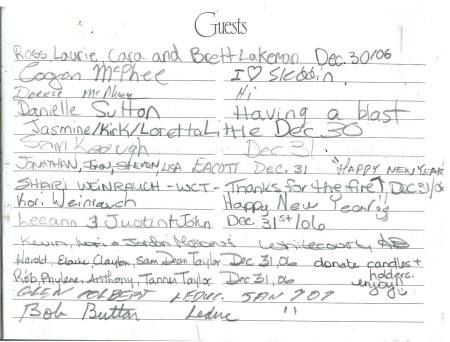 Guests
Ross, Laurie, Cara and Brett Lakeman Dec. 30/06
Cogan McPhee I ♡ Sleddin
McPhee Hi
Danielle Sutton Having a blast
Jasmine/Kirk/Loretta Little Dec. 30
Sam Keough Dec 31
JONATHAN, JOHN, STEVEN, LISA EACOTT DEC. 31 "HAPPY NEW YEAR"
SHARI WEINRAUCH - WCT - Thanks for the fire! DEC 31/06
Kori Weinrauch Happy New Year!!
Leeann & Justin & John Dec. 31st/06
Kevin, & Jordan Whitecourt AB
Harold, Elaine, Clayton, Sam Dean Taylor Dec 31, 06 donate candles +
Rob, Phylene, Anthony, Tanner Taylor Dec 31, 06 holders. enjoy!
GLEN COLBERT LEDUC. JAN 707
Bob Button Leduc "